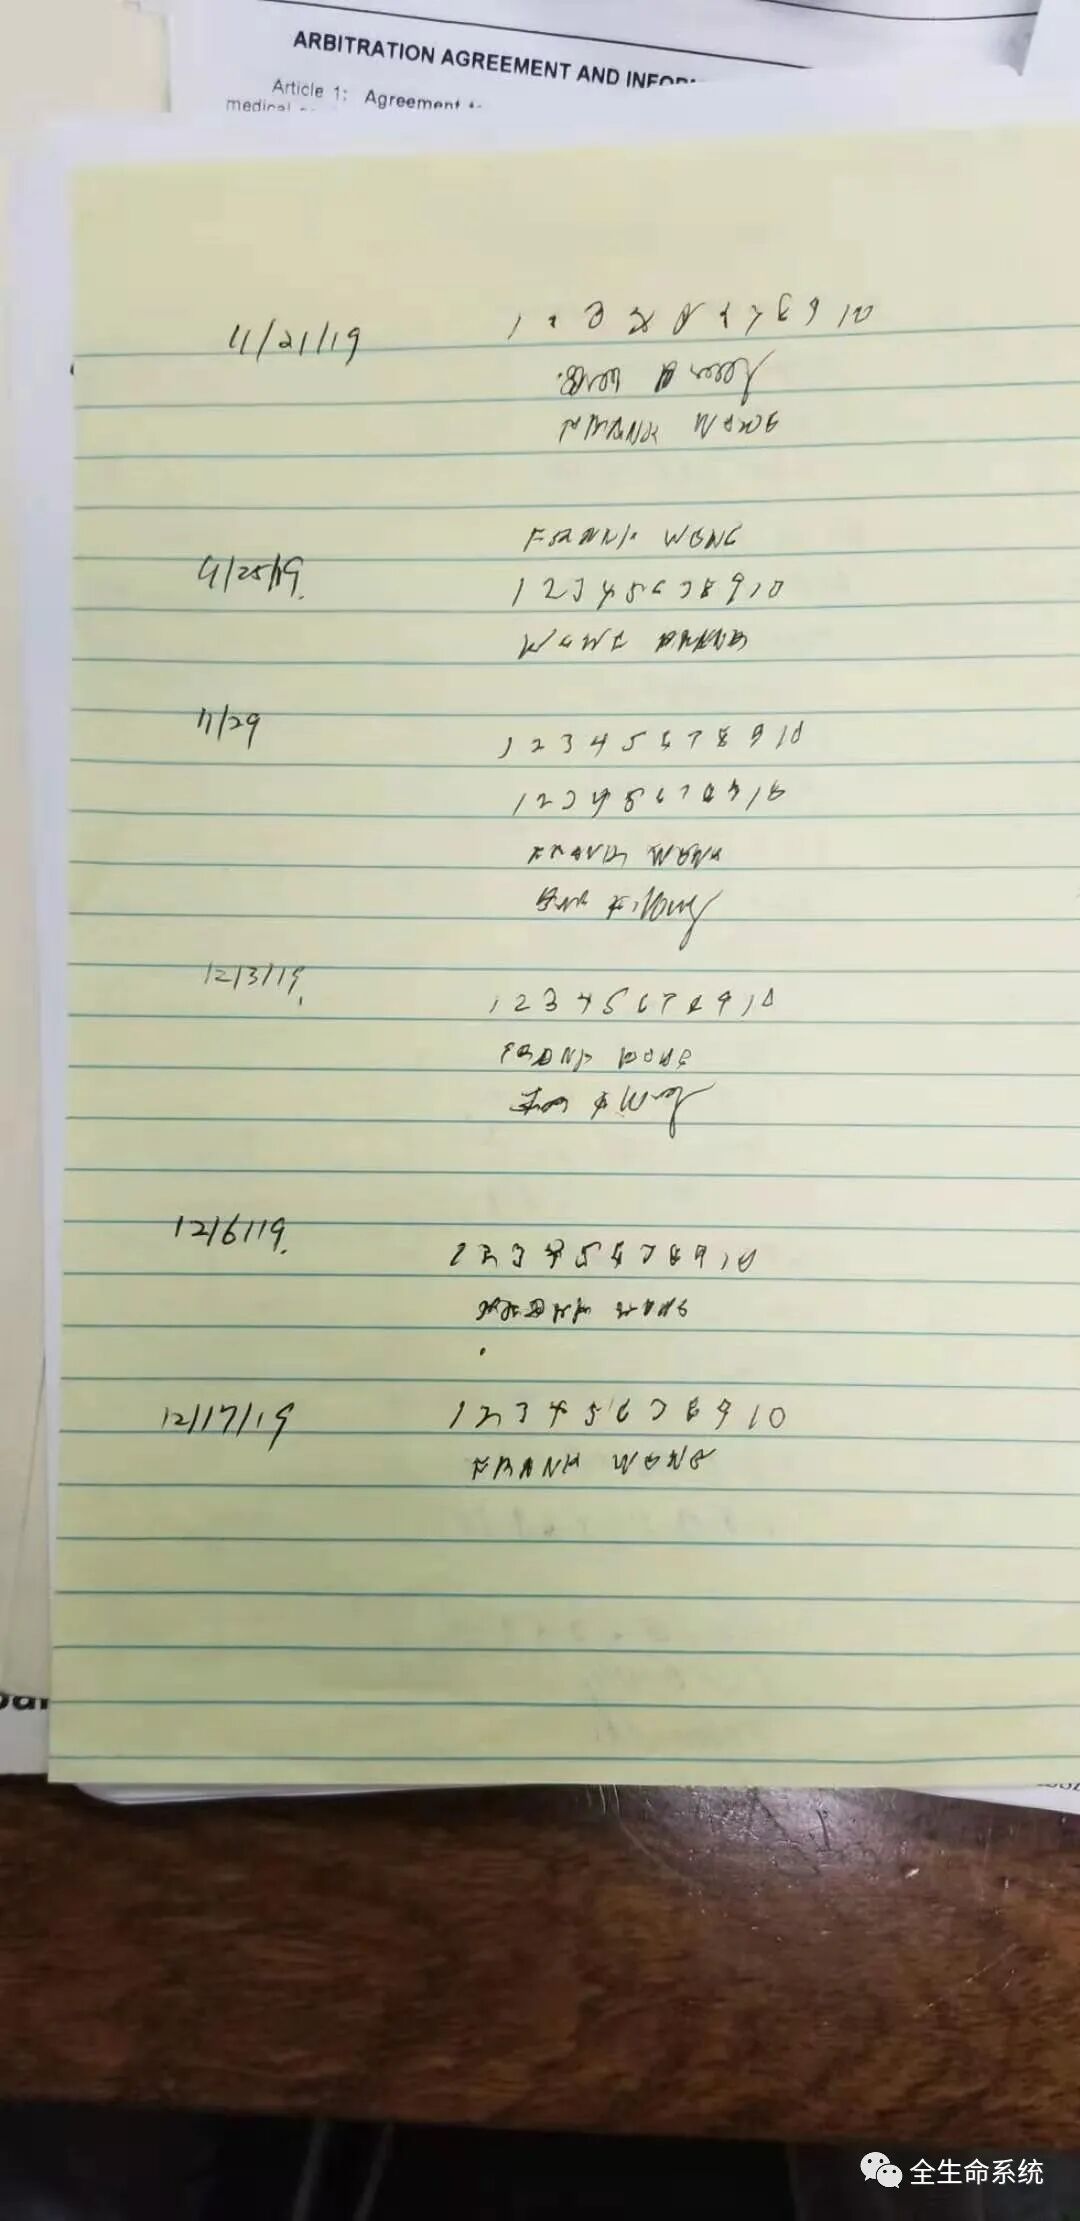 ARBITRATION AGREEMENT AND INFOR
Article 1: Agreement to
medical
11/21/19
1 2 3 4 5 6 7 8 9 10
FRANK WONG
FRANK WONG
11/25/19.
1 2 3 4 5 6 7 8 9 10
WONG FRANK
11/29
1 2 3 4 5 6 7 8 9 10
1 2 3 4 5 6 7 8 9 10
FRANK WONG
12/3/19.
1 2 3 4 5 6 7 8 9 10
FRANK WONG
12/6/19.
1 2 3 4 5 6 7 8 9 10
12/17/19
1 2 3 4 5 6 7 8 9 10
FRANK WONG
全生命系统